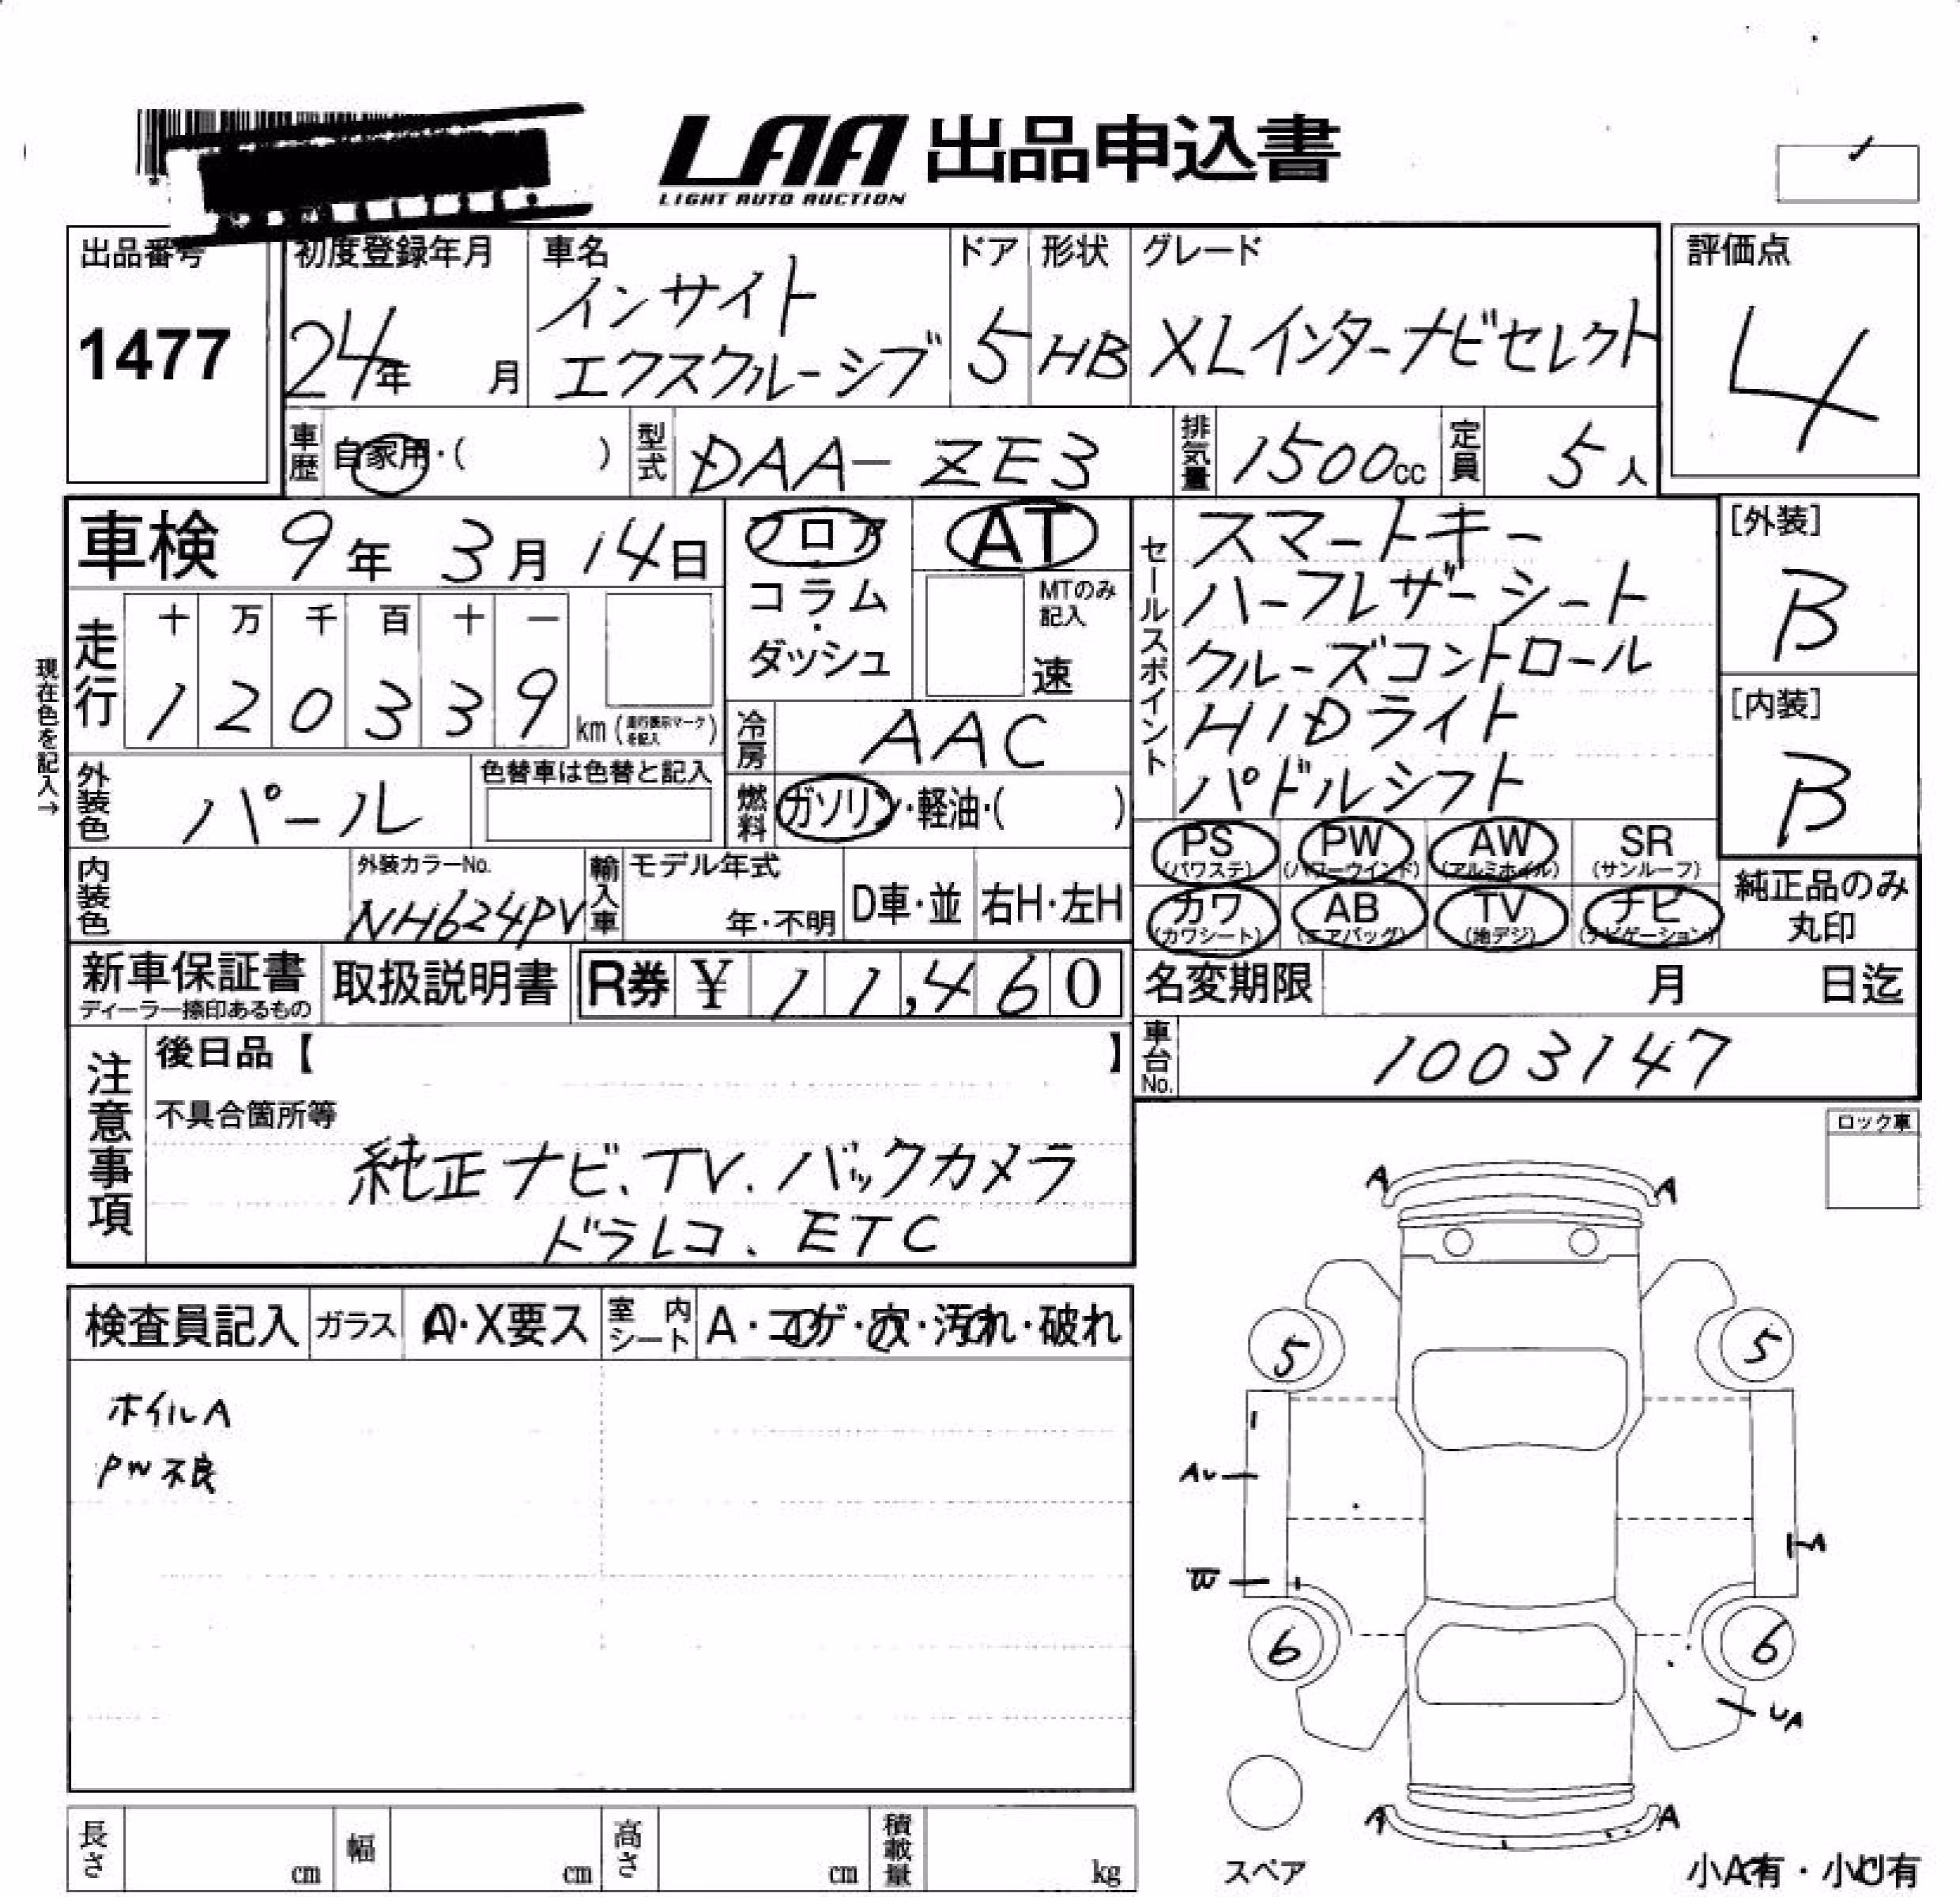 LAA 出品申込書
LIGHT AUTO AUCTION
出品番号
1477
初度登録年月
24年 月
車名
インサイト
エクスクルーシブ
ドア
5
形状
HB
グレード
XLインターナビセレクト
評価点
4
車歴 自家用・( )
型式 DAA-ZE3
排気量 1500cc
定員 5人
車検 9年 3月 14日
フロア
コラム
・
ダッシュ
AT
MTのみ
記入
速
セールスポイント
スマートキー
ハーフレザーシート
クルーズコントロール
HIDライト
パドルシフト
[外装]
B
[内装]
B
現在色を記入→
走行
十 万 千 百 十 一
1 2 0 3 3 9 km (走行表示マークを記入)
冷房 AAC
外装色 パール
色替車は色替と記入
燃料 ガソリン・軽油・( )
PS
(パワステ)
PW
(パワーウインド)
AW
(アルミホイル)
SR
(サンルーフ)
カワ
(カワシート)
AB
(エアバッグ)
TV
(地デジ)
ナビ
(ナビゲーション)
純正品のみ
丸印
内装色
外装カラーNo.
NH624PV
輸入車
モデル年式
年・不明
D車・並
右H・左H
新車保証書
ディーラー捺印あるもの
取扱説明書
R券 ¥ 11,460
名変期限 月 日迄
車台No. 1003147
注意事項
後日品【 】
不具合箇所等
純正ナビ、TV、バックカメラ
ドラレコ、ETC
ロック車
検査員記入
ガラス A・X要ス
室内シート A・コゲ・穴・汚れ・破れ
ホイルA
PW不良
A A
5 5
AU
W
6 6
UA
A A
スペア
小A有・小U有
長さ cm
幅 cm
高さ cm
積載量 kg